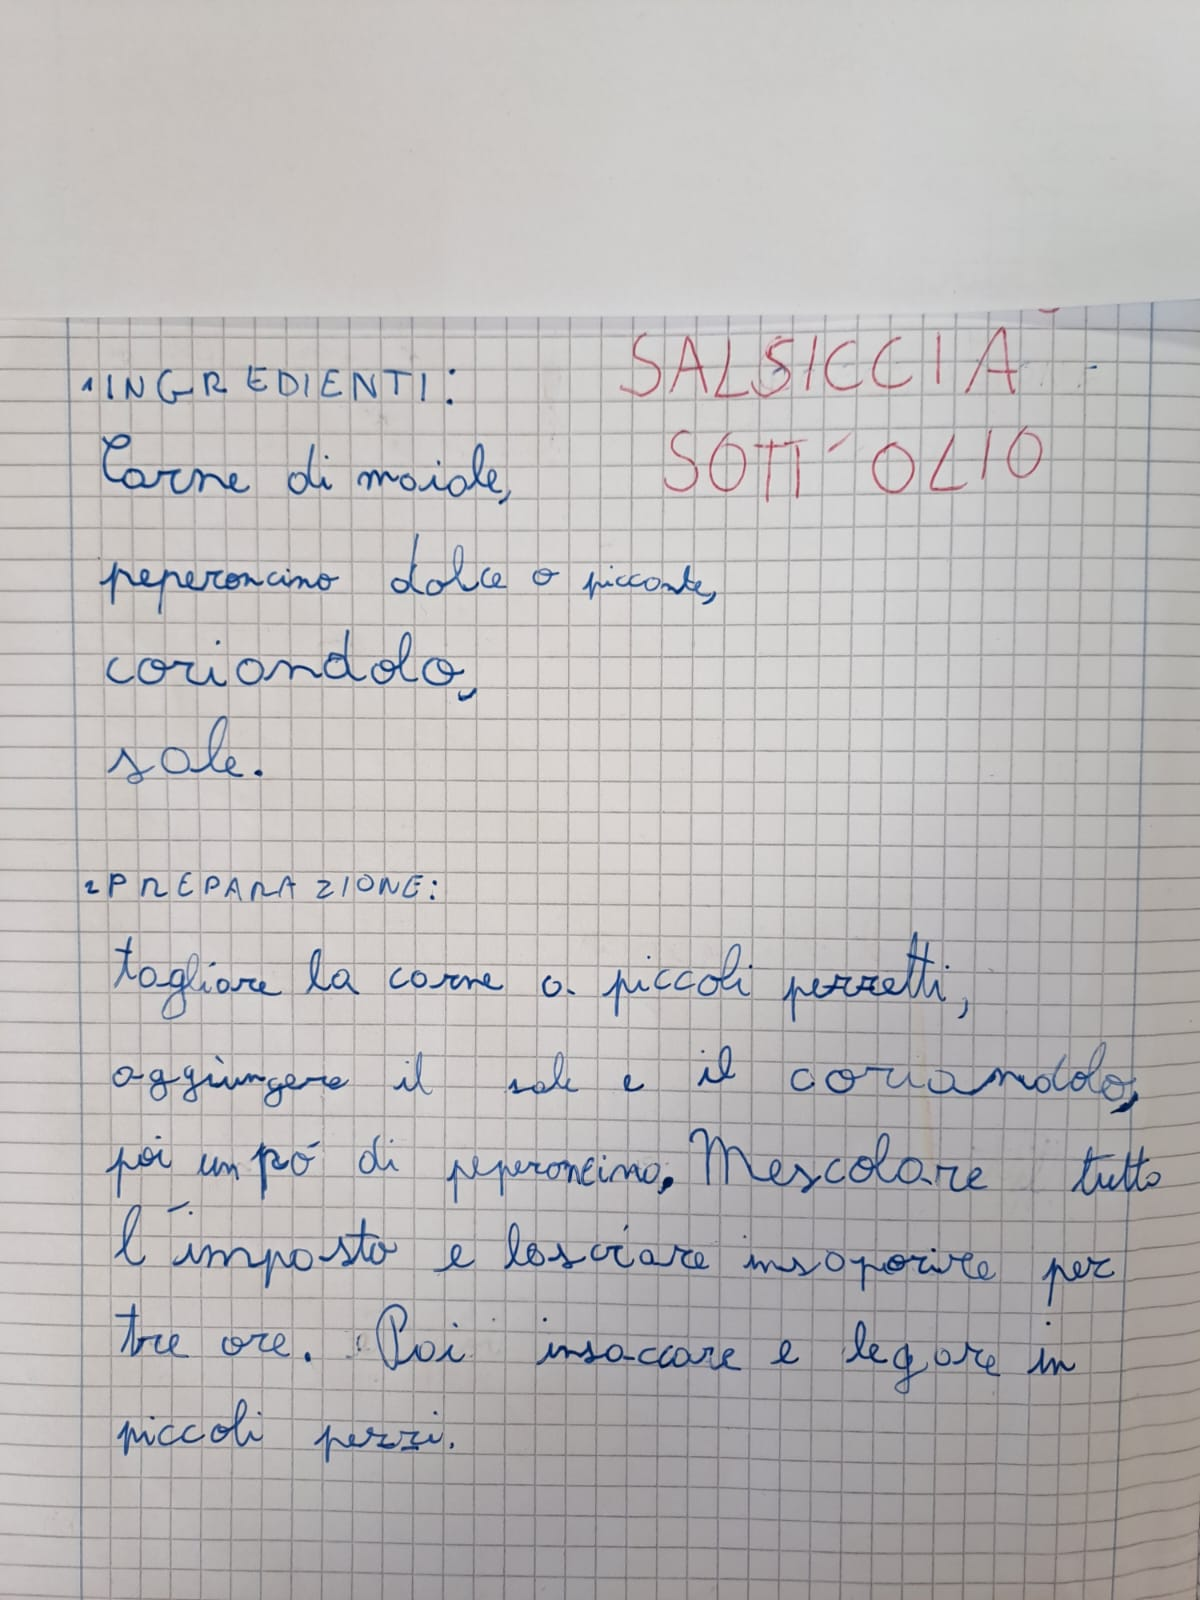 SALSICCIA
SOTT'OLIO
1 INGREDIENTI:
Carne di maiale,
peperoncino dolce o piccante,
coriandolo,
sale.
2 PREPARAZIONE:
tagliare la carne a piccoli pezzetti,
aggiungere il sale e il coriandolo,
poi un pó di peperoncino. Mescolare tutto
l'imposto e lasciare insaporire per
tre ore. Poi insaccare e legare in
piccoli pezzi.